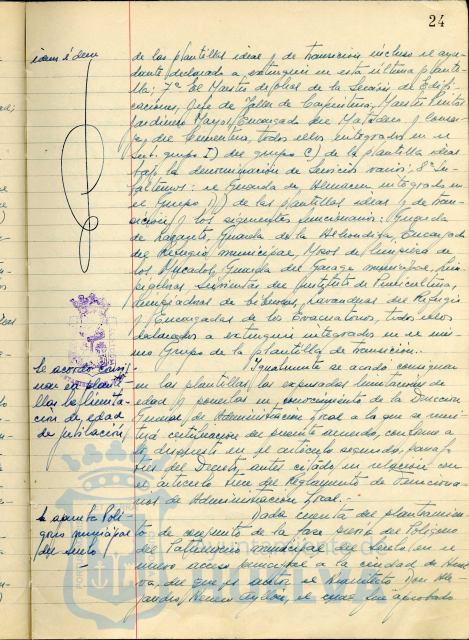 24
idem idem
de las plantillas ideal y de transición incluso el ayu-
dante declarado a extinguir en esta última planti-
lla; 7º El Maestro de la Sección de Edifi-
caciones, Jefe de Taller de Carpintería, Maestro Pintor
Jardinero Mayor, Encargado del Matadero y Conser-
je del Cementerio, todos ellos integrados en el
Sub-grupo I) del grupo C) de la plantilla ideal
bajo la denominación de Servicios varios; 8º Su-
balternos: el Guarda de Almacén integrado en
el Grupo D) de las plantillas ideal y de tran-
sición y los siguientes funcionarios: Guarda
de Guarda de la Alhondiga, Encargado
del Refugio municipal, Mozos de limpieza de
los Mercados, Guarda del Garage municipal, Lim-
piadoras del Instituto de Puericultura,
limpiadoras de lavanderas del Refugio
y Encargadas de los Evacuatorios, todos ellos
declarados a extinguir integrados en el mis-
mo Grupo de la plantilla de transición.-
Se acordó consig-
nar en planti-
llas la limita-
ción de edad
de jubilación
Igualmente se acordó consignar
en las plantillas, las expresadas limitaciones de
edad y ponerlas en conocimiento de la Dirección
General de Administración Local a la que se remi-
tirá certificación del presente acuerdo, conforme a
lo dispuesto en el artículo segundo, párrafo
del Decreto antes citado en relación con
el artículo del Reglamento de Funciona-
rios de Administración Local.-
Se aprueba Polí-
gono municipal
del suelo
Dada cuenta del planteamien-
to de de la fase del Polígono
del Patrimonio municipal del Suelo en el
nuevo acceso principal a la ciudad de Huel-
va, del que es autor el Arquitecto Don Ale-
jandro Herrero Ayllón, el cual fué aprobado